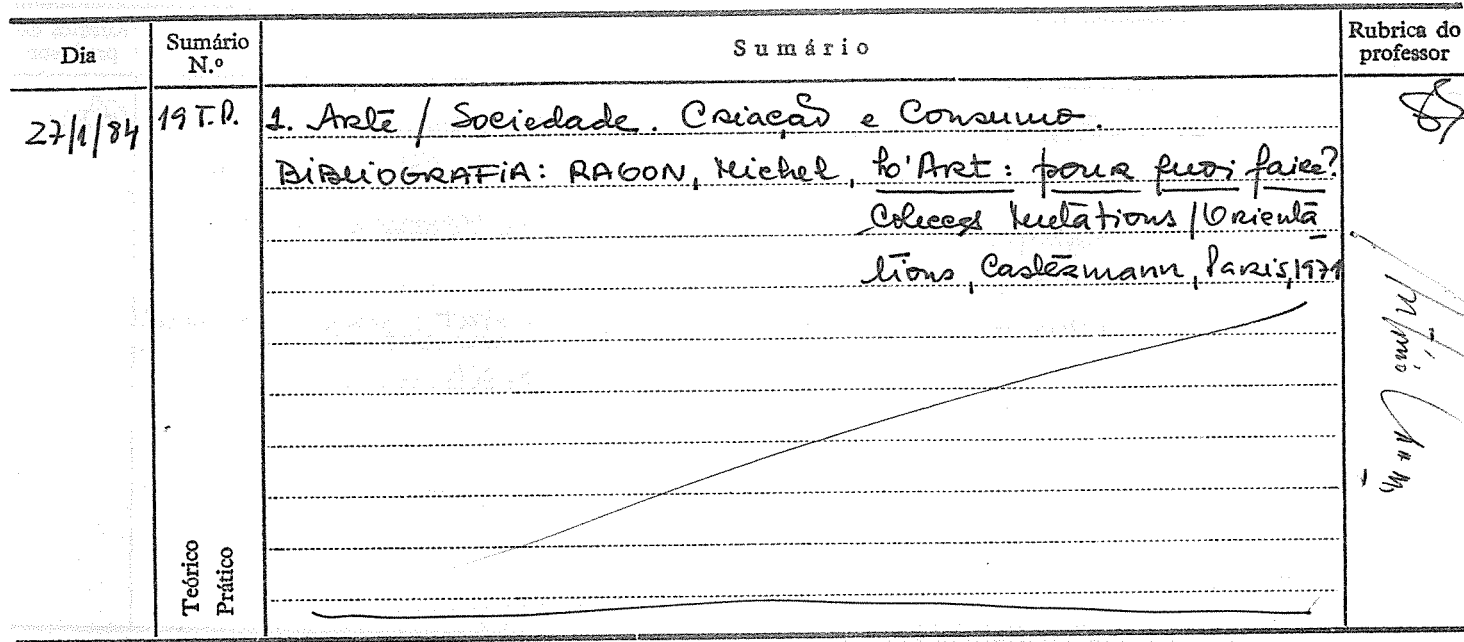 Dia
Sumário N.º
Sumário
Rubrica do professor
27/1/84
19 T.P.
1. Arte / Sociedade. Criação e Consumo.
BIBLIOGRAFIA: RAGON, Michel, L'Art: pour quoi faire?
Colecção Mutations / Orienta
tions, Casterman, Paris, 1971
Teórico
Prático